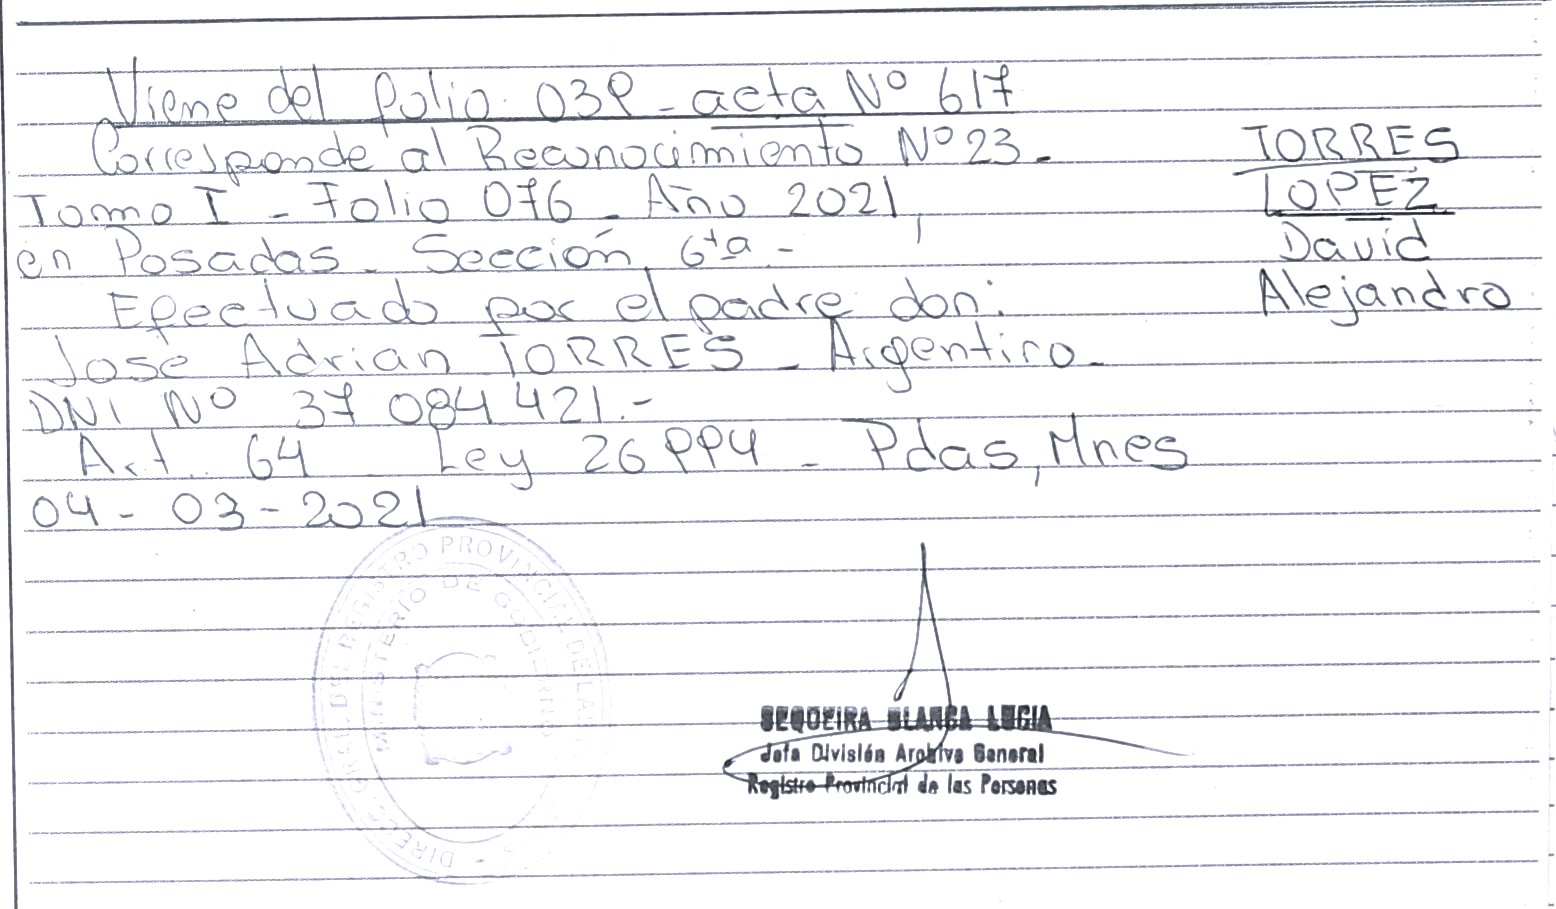 Viene del folio 039 - acta Nº 617
Corresponde al Reconocimiento Nº 23 -
Tomo I - Folio 076 - Año 2021,
en Posadas - Sección 6ta -
Efectuado por el padre don:
José Adrian TORRES - Argentino -
DNI Nº 37 084 421.-
Art. 64 Ley 26994 - Pdas, Mnes
04 - 03 - 2021
TORRES
LOPEZ
David
Alejandro
MINISTERIO DE GOBIERNO
SEQUEIRA BLANCA LUCIA
Jefa División Archivo General
Registro Provincial de las Personas